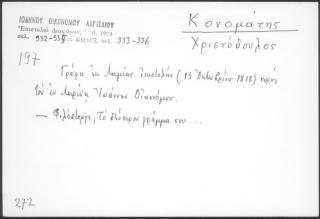 ΙΩΑΝΝΟΥ ΟΙΚΟΝΟΜΟΥ ΛΑΡΙΣΑΙΟΥ
Ἐπιστολαὶ Διαφόρων, 1974
σελ. 332-335 ΚΩΔΙΞ, σελ. 333-336
Κονομάτης
Χριστόδουλος
197
Γράφει ἐκ Λαμίας ἐπιστολὴν (13 Ὀκτωβρίου 1818) πρὸς
τὸν ἐν Λαρίσῃ Ἰωάννην Οἰκονόμον.
— Φιλόστοργε, Τὸ δεύτερον γράμμα σου...
272